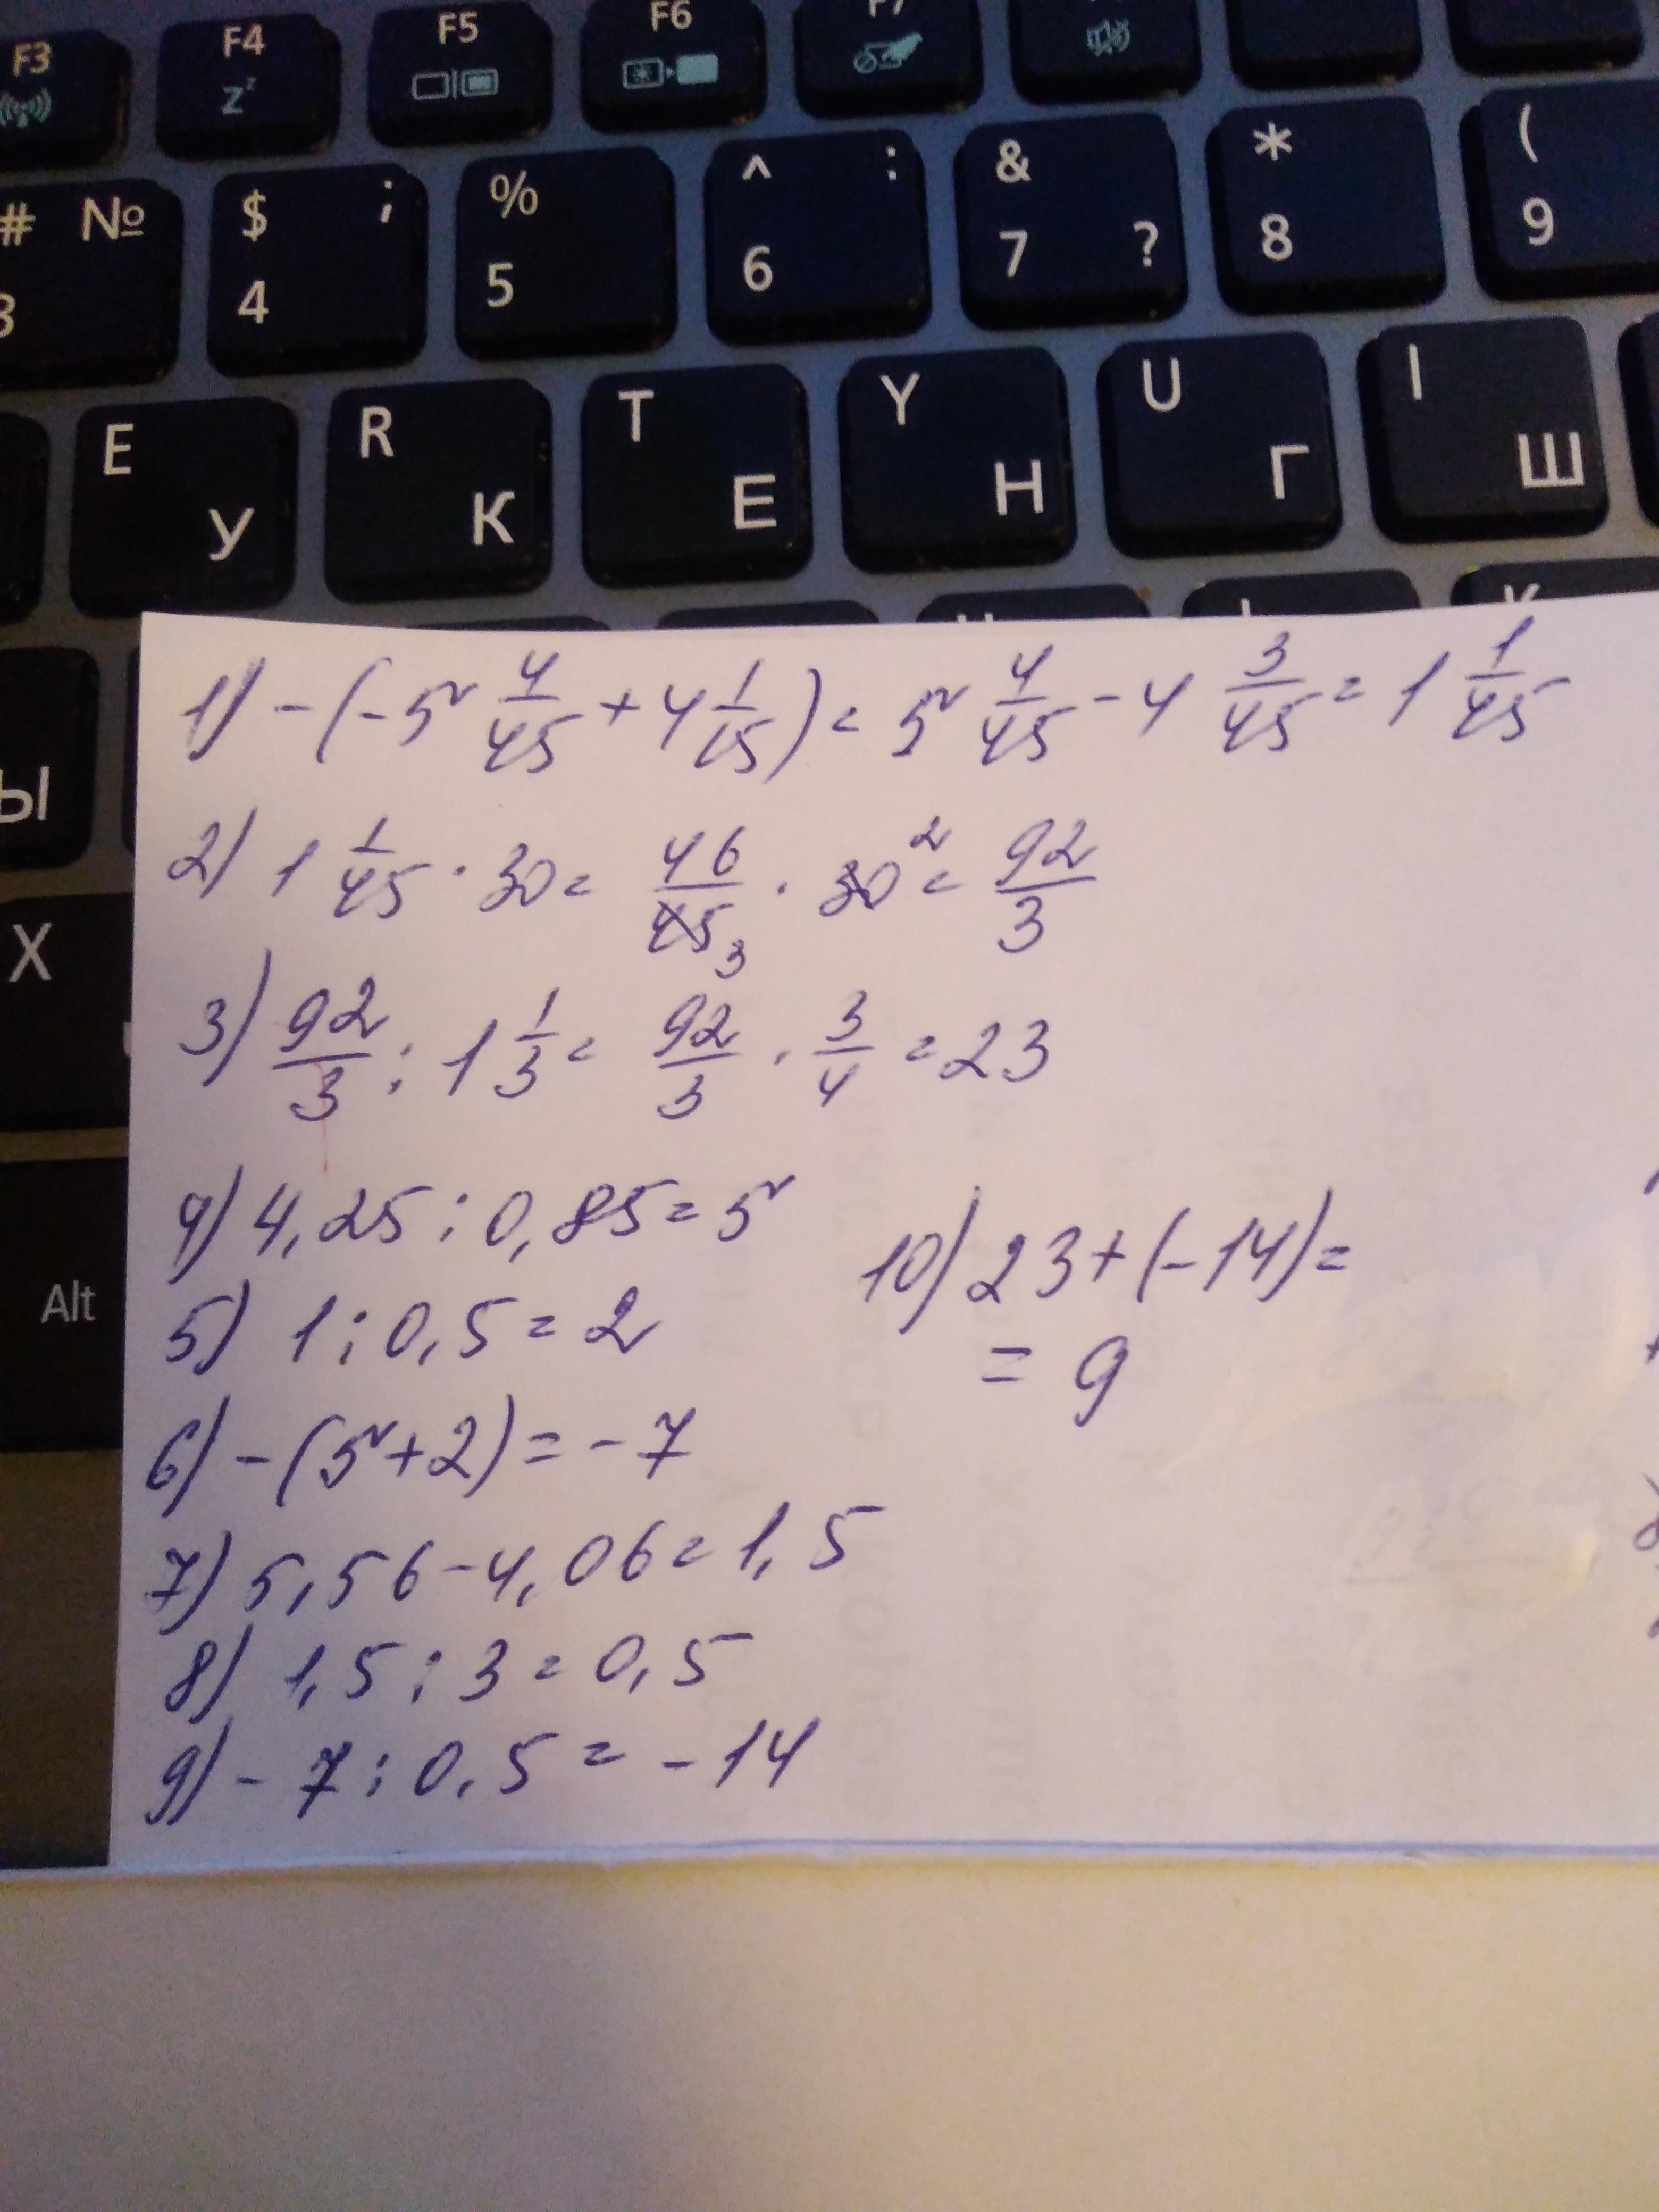 F3 F4 F5 F6 F7
z^z
# № 3 $ ; 4 % 5 ^ : 6 & 7 ? * 8 ( 9
E У R К T Е Y Н U Г I Ш
Ы
X
Alt
1) -(-5 4/45 + 4 1/15) = 5 4/45 - 4 3/45 = 1 1/45
2) 1 1/45 · 30 = 46/45 3 · 30 2 = 92/3
3) 92/3 : 1 1/3 = 92/3 · 3/4 = 23
4) 4,25 : 0,85 = 5
5) 1 : 0,5 = 2
6) -(5+2) = -7
7) 5,56 - 4,06 = 1,5
8) 1,5 : 3 = 0,5
9) - 7 : 0,5 = -14
10) 23 + (-14) =
= 9